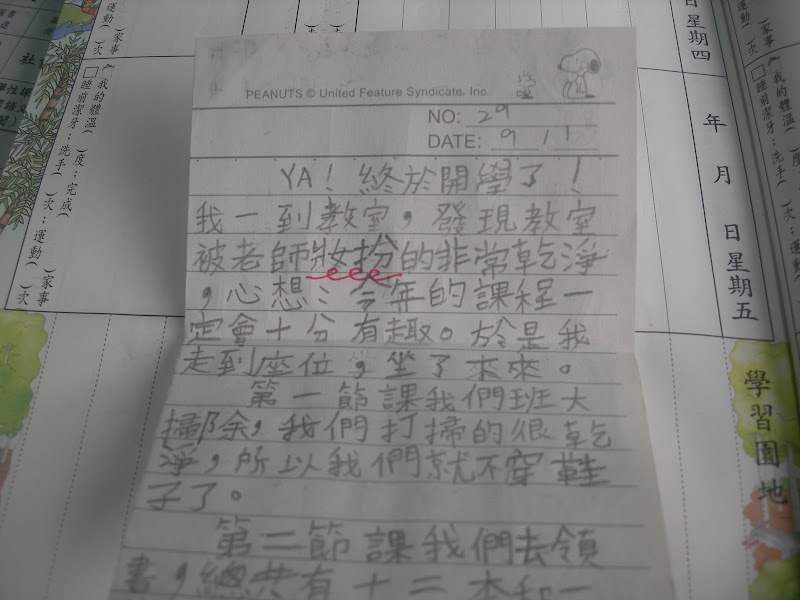 PEANUTS © United Feature Syndicate, Inc.
NO: 29
DATE: 9 / 1
YA！終於開學了！
我一到教室，發現教室
被老師妝扮的非常乾淨
，心想：今年的課程一
定會十分有趣。於是我
走到座位，坐了末來。
第一節課我們班大
掃除，我們打掃的很乾
淨，所以我們就不穿鞋
子了。
第二節課我們去領
書，總共有十二本和一
日星期四
年 月 日星期五
學習園地
我的體溫( )度；完成( )家事
□睡前潔牙；洗手( )次；運動( )次